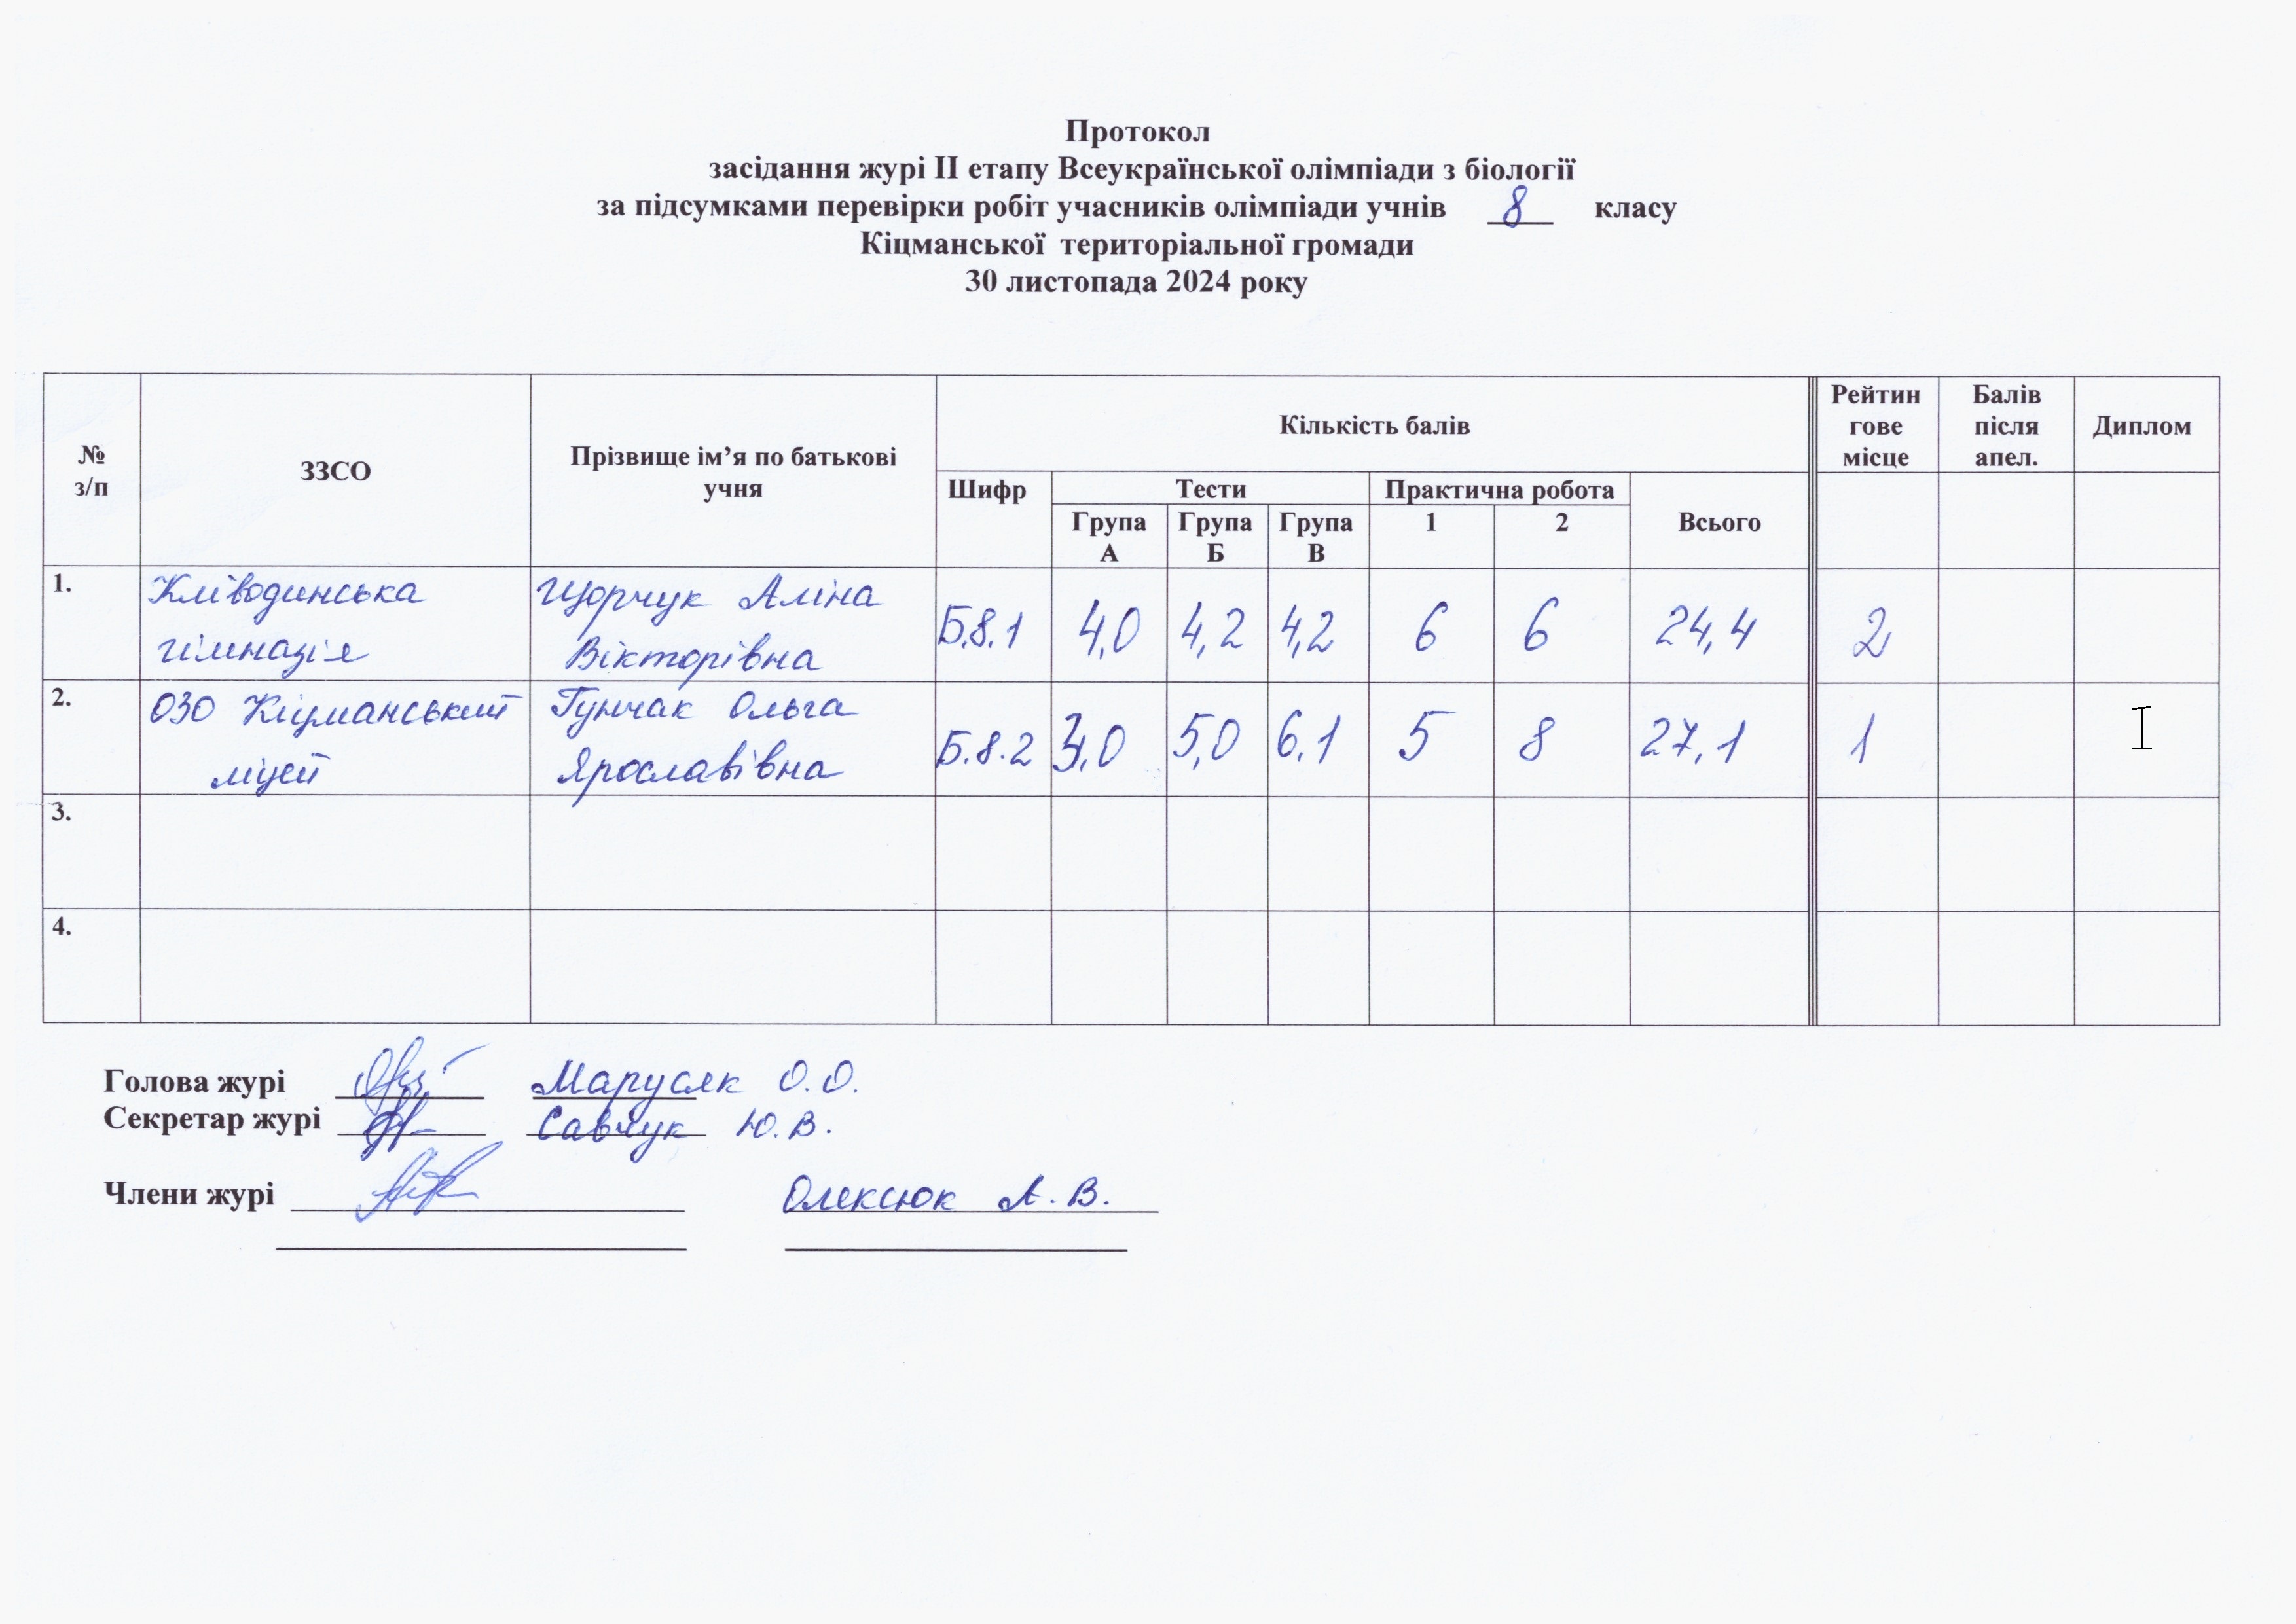 Протокол
засідання журі ІІ етапу Всеукраїнської олімпіади з біології
за підсумками перевірки робіт учасників олімпіади учнів 8 класу
Кіцманської територіальної громади
30 листопада 2024 року
№ з/п ЗЗСО Прізвище ім’я по батькові учня Кількість балів Рейтин гове місце Балів після апел. Диплом
Шифр Тести Практична робота Всього
Група А Група Б Група В 1 2
1. Кліводинська Щорчук Аліна Б.8.1 4,0 4,2 4,2 6 6 24,4 2
гімназія Вікторівна
2. ОЗО Кіцманський Гунчак Ольга Б.8.2 3,0 5,0 6,1 5 8 27,1 1
ліцей Ярославівна
3.
4.
Голова журі Марусяк О.О.
Секретар журі Савчук Ю.В.
Члени журі Олексюк А.В.